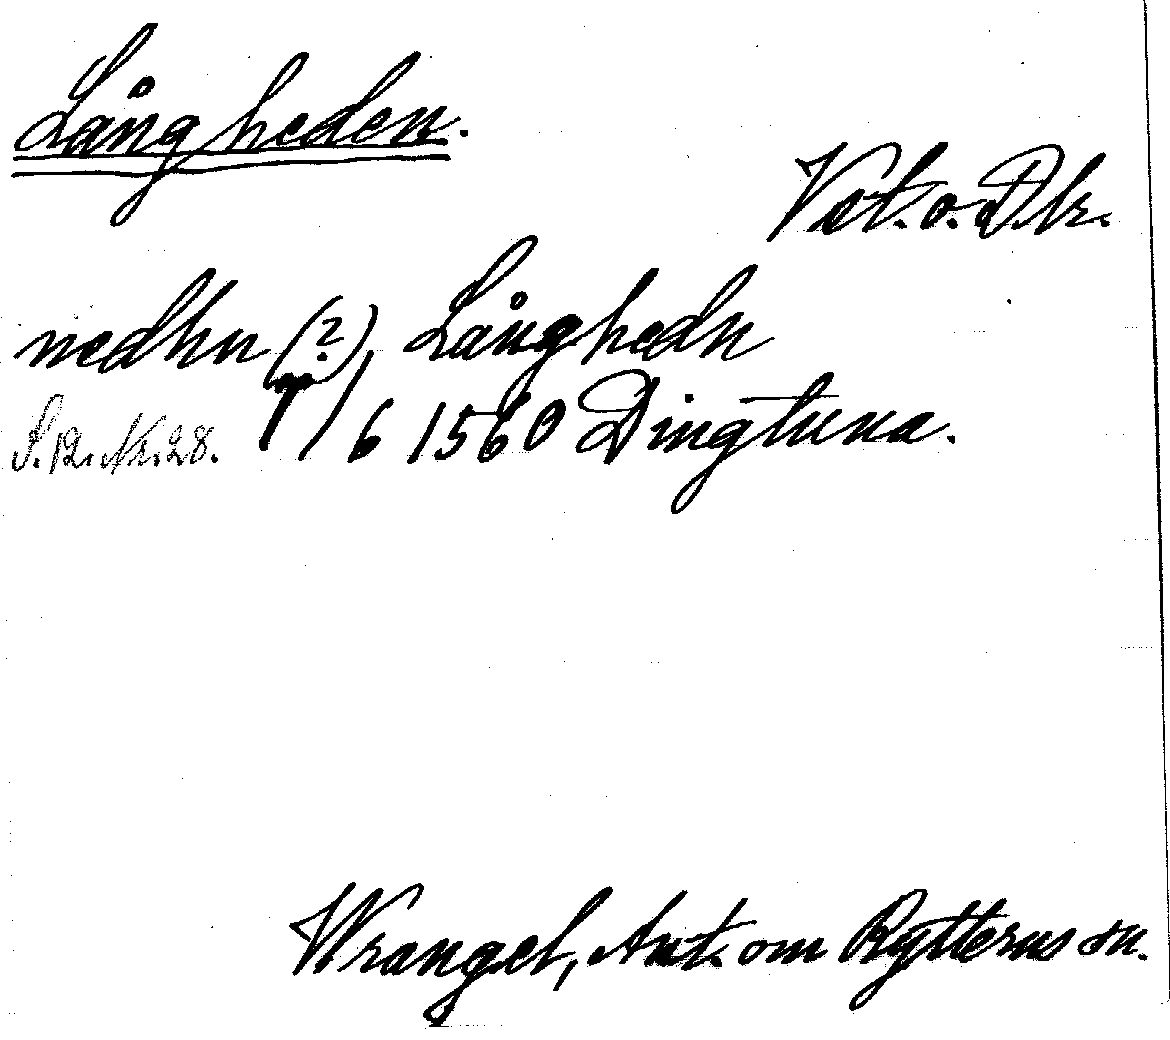 Långheden.
Vst. o. Dlr.
nedhu (?), Långhedn
S. 12. Nr. 28. 1/6 1560 Dingtuna.
Wrangel, Ant. om Rytterns sn.